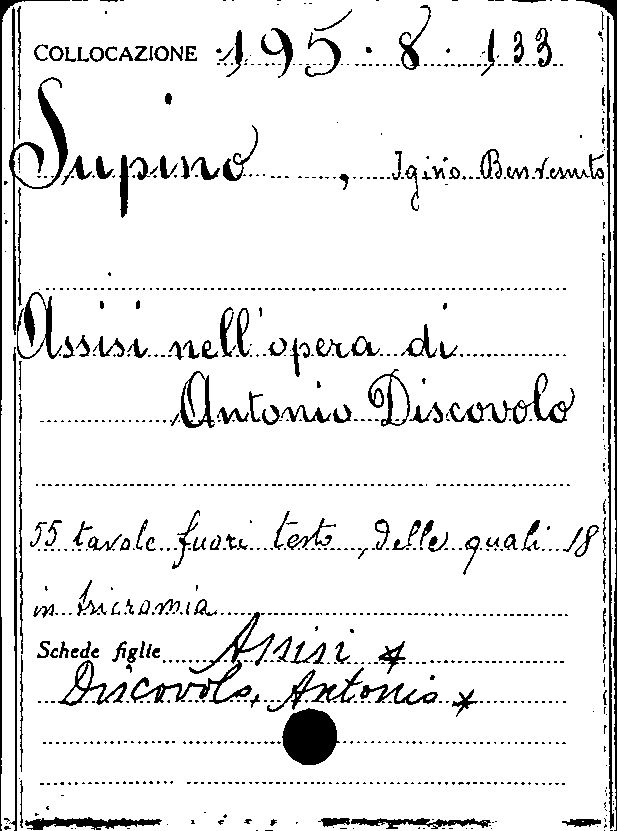 COLLOCAZIONE 195.8.133
Supino, Igino Benvenuto
Assisi nell'opera di
Antonio Discovolo
55 tavole fuori testo, delle quali 18
in tricromia
Schede figlie Assisi *
Discovolo, Antonio *